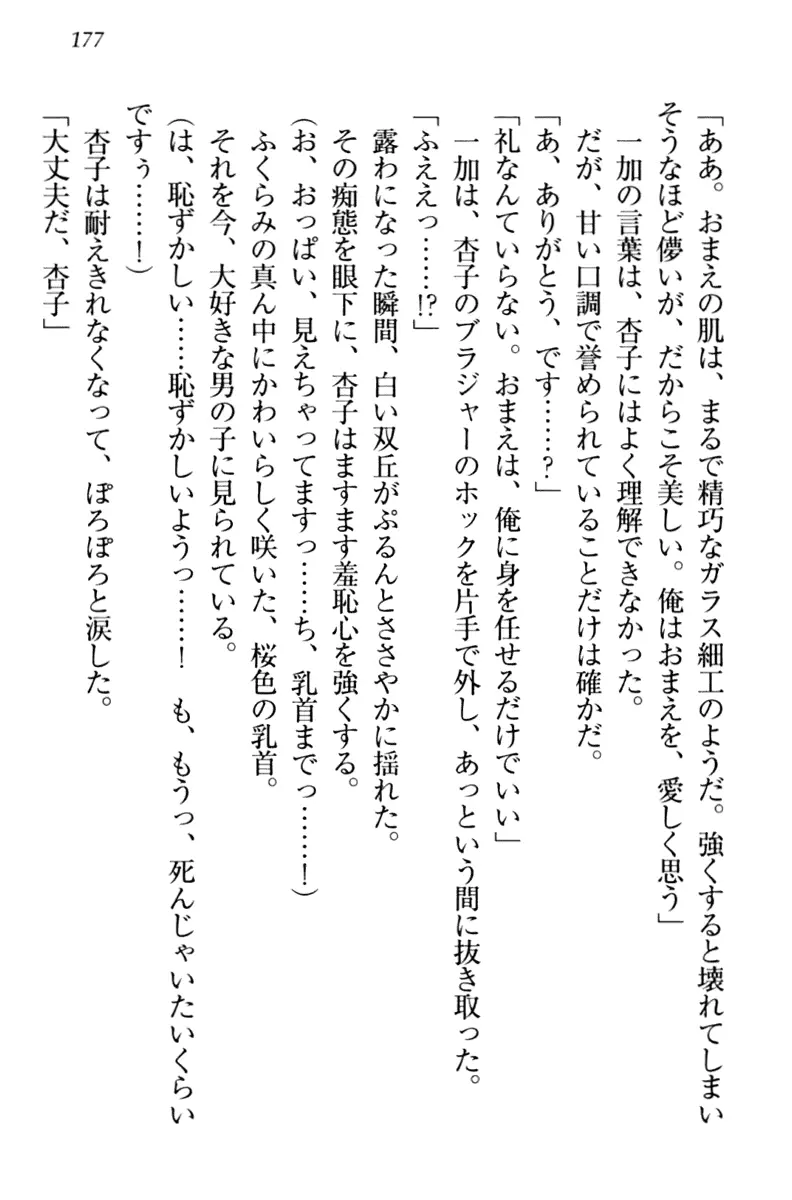 177
「ああ。おまえの肌は、まるで精巧なガラス細工のようだ。強くすると壊れてしまい
そうなほど儚いが、だからこそ美しい。俺はおまえを、愛しく思う」
一加の言葉は、杏子にはよく理解できなかった。
だが、甘い口調で誉められていることだけは確かだ。
「あ、ありがとう、です……？」
「礼なんていらない。おまえは、俺に身を任せるだけでいい」
一加は、杏子のブラジャーのホックを片手で外し、あっという間に抜き取った。
「ふええっ……!?」
露わになった瞬間、白い双丘がぷるんとささやかに揺れた。
その痴態を眼下に、杏子はますます羞恥心を強くする。
（お、おっぱい、見えちゃってますっ……ち、乳首までっ……！）
ふくらみの真ん中にかわいらしく咲いた、桜色の乳首。
それを今、大好きな男の子に見られている。
（は、恥ずかしい……恥ずかしいようっ……！　も、もうっ、死んじゃいたいくらい
ですぅ……！）
杏子は耐えきれなくなって、ぽろぽろと涙した。
「大丈夫だ、杏子」